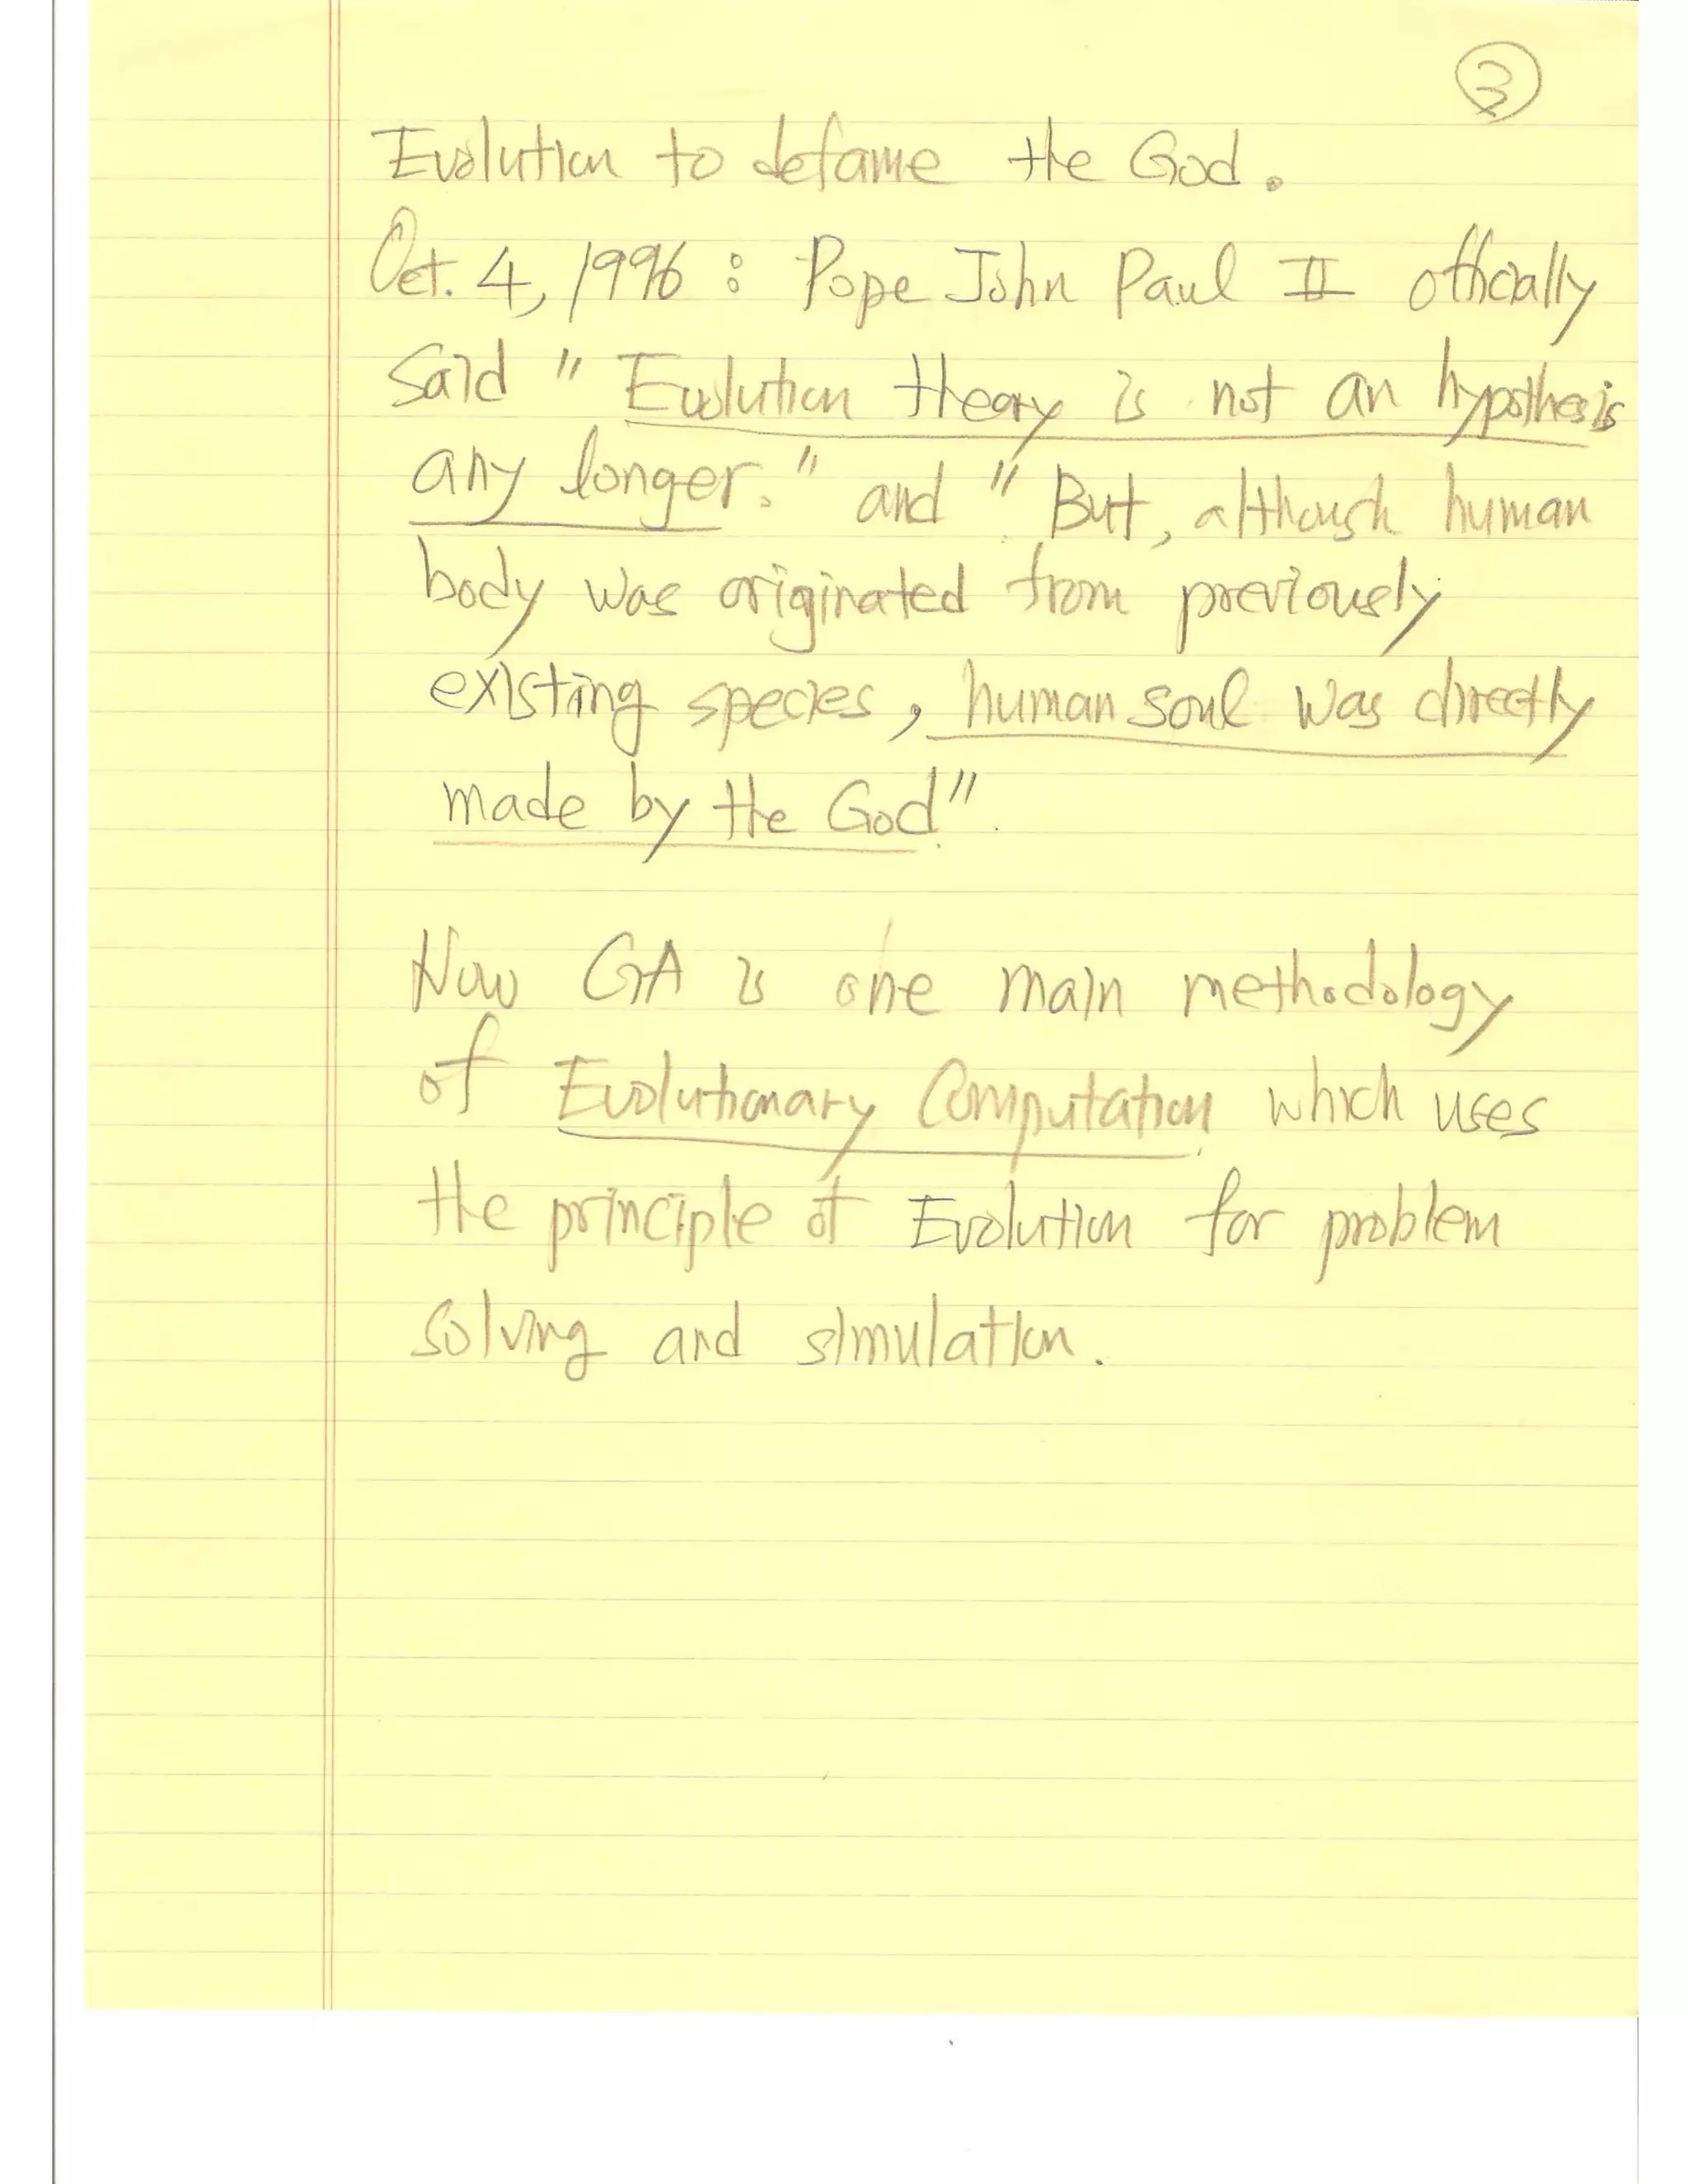 3
Evolution to defame the God.
Oct. 4, 1996 : Pope John Paul II officially
said " Evolution theory is not an hypothesis
any longer." and " But, although human
body was originated from previously
existing species, human soul was directly
made by the God".
Now GA is one main methodology
of Evolutionary Computation which uses
the principle of Evolution for problem
solving and simulation.